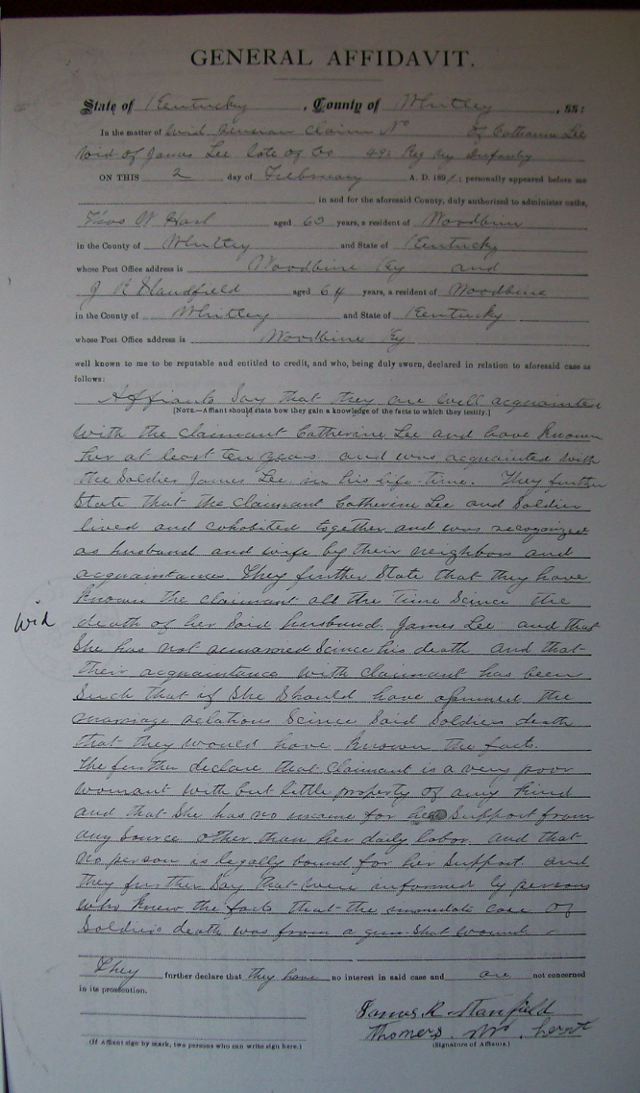 GENERAL AFFIDAVIT.
State of Kentucky, County of Whitley, ss:
In the matter of Claim No of Catharine Lee
Wid of James Lee late of Co 49: Reg Ky Infantry
ON THIS 2 day of February A. D. 189; personally appeared before me
in and for the aforesaid County, duly authorized to administer oaths,
Thos W Hart aged 63 years, a resident of Woodbine
in the County of Whitley and State of Kentucky
whose Post Office address is Woodbine Ky and
J R Standfield aged 64 years, a resident of Woodbine
in the County of Whitley and State of Kentucky
whose Post Office address is Woodbine Ky
well known to me to be reputable and entitled to credit, and who, being duly sworn, declared in relation to aforesaid case as
follows:
Affiants Say that they are well acquainted
[NOTE.—Affiant should state how they gain a knowledge of the facts to which they testify.]
with the claimant Catherine Lee and have known
her at least ten years and was acquainted with
the Soldier James Lee in his life time. They further
State that the claimant Catherine Lee and Soldier
lived and cohobited together and was recognized
as husband and wife by their neighbors and
acquaintances. They further State that they have
known the claimant all the time Scince the
wid
death of her Said husband James Lee and that
She has not remarried Scince his death and that
their acquaintance with claimant has been
Such that if She Should have the
marriage relations Scince Said Soldiers death
that they would have known the facts.
The further declare that claimant is a very poor
womant with but little property of any Kind
and that She has no income for her Support from
any Source other than her daily labor and that
no person is legally bound for her Support and
they further Say that were informed by persons
who knew the facts that the case of
Soldiers death was from a gun Shot wound
They further declare that they have no interest in said case and are not concerned
in its prosecution.
James R Stanfield
Thomas W
(If Affiant sign by mark, two persons who can write sign here.)
(Signature of Affiants.)